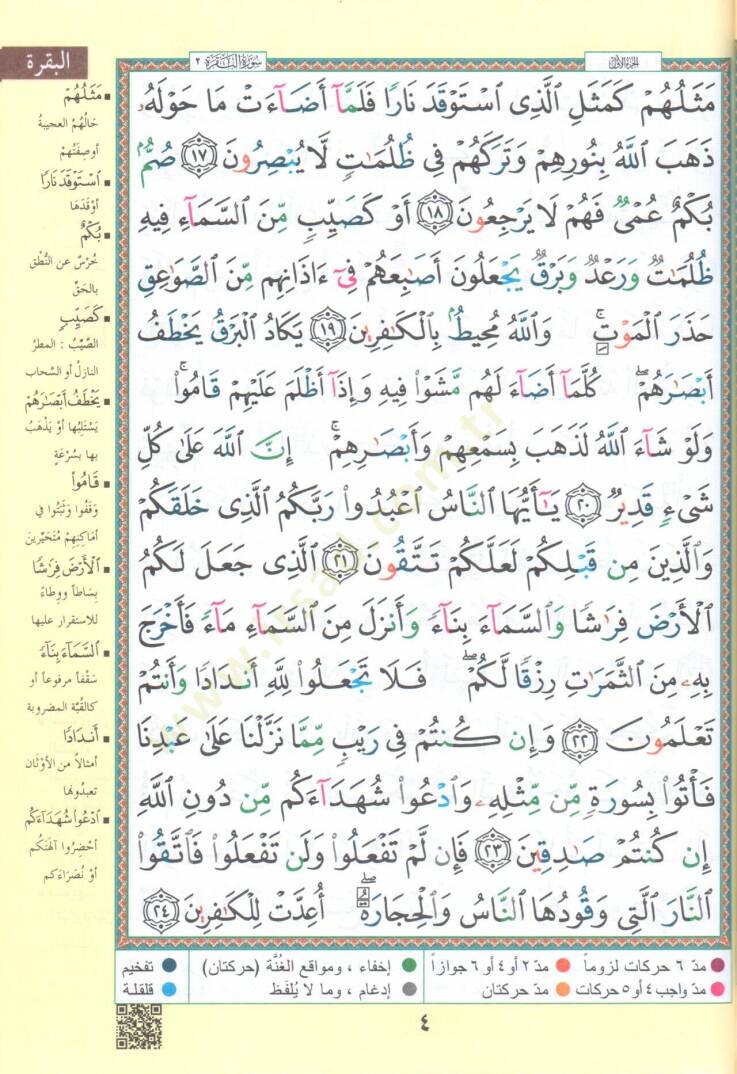 البقرة
الجزء الأول
سورة البقرة ٢
مَثَلُهُمْ كَمَثَلِ ٱلَّذِى ٱسْتَوْقَدَ نَارًا فَلَمَّآ أَضَآءَتْ مَا حَوْلَهُۥ
ذَهَبَ ٱللَّهُ بِنُورِهِمْ وَتَرَكَهُمْ فِى ظُلُمَٰتٍ لَّا يُبْصِرُونَ ١٧ صُمٌّۢ
بُكْمٌ عُمْىٌ فَهُمْ لَا يَرْجِعُونَ ١٨ أَوْ كَصَيِّبٍ مِّنَ ٱلسَّمَآءِ فِيهِ
ظُلُمَٰتٌ وَرَعْدٌ وَبَرْقٌ يَجْعَلُونَ أَصَٰبِعَهُمْ فِىٓ ءَاذَانِهِم مِّنَ ٱلصَّوَٰعِقِ
حَذَرَ ٱلْمَوْتِ ۚ وَٱللَّهُ مُحِيطٌۢ بِٱلْكَٰفِرِينَ ١٩ يَكَادُ ٱلْبَرْقُ يَخْطَفُ
أَبْصَٰرَهُمْ ۖ كُلَّمَآ أَضَآءَ لَهُم مَّشَوْا۟ فِيهِ وَإِذَآ أَظْلَمَ عَلَيْهِمْ قَامُوا۟ ۚ
وَلَوْ شَآءَ ٱللَّهُ لَذَهَبَ بِسَمْعِهِمْ وَأَبْصَٰرِهِمْ ۚ إِنَّ ٱللَّهَ عَلَىٰ كُلِّ
شَىْءٍ قَدِيرٌ ٢٠ يَٰٓأَيُّهَا ٱلنَّاسُ ٱعْبُدُوا۟ رَبَّكُمُ ٱلَّذِى خَلَقَكُمْ
وَٱلَّذِينَ مِن قَبْلِكُمْ لَعَلَّكُمْ تَتَّقُونَ ٢١ ٱلَّذِى جَعَلَ لَكُمُ
ٱلْأَرْضَ فِرَٰشًا وَٱلسَّمَآءَ بِنَآءً وَأَنزَلَ مِنَ ٱلسَّمَآءِ مَآءً فَأَخْرَجَ
بِهِۦ مِنَ ٱلثَّمَرَٰتِ رِزْقًا لَّكُمْ ۖ فَلَا تَجْعَلُوا۟ لِلَّهِ أَندَادًا وَأَنتُمْ
تَعْلَمُونَ ٢٢ وَإِن كُنتُمْ فِى رَيْبٍ مِّمَّا نَزَّلْنَا عَلَىٰ عَبْدِنَا
فَأْتُوا۟ بِسُورَةٍ مِّن مِّثْلِهِۦ وَٱدْعُوا۟ شُهَدَآءَكُم مِّن دُونِ ٱللَّهِ
إِن كُنتُمْ صَٰدِقِينَ ٢٣ فَإِن لَّمْ تَفْعَلُوا۟ وَلَن تَفْعَلُوا۟ فَٱتَّقُوا۟
ٱلنَّارَ ٱلَّتِى وَقُودُهَا ٱلنَّاسُ وَٱلْحِجَارَةُ ۖ أُعِدَّتْ لِلْكَٰفِرِينَ ٢٤
مَثَلُهُمْ
حَالُهُمُ العجيبةُ
أو صِفَتُهُمْ
ٱسْتَوْقَدَ نَارًا
أوْقَدَهَا
بُكْمٌ
خُرْسٌ عن النُّطْقِ
بالحَقِّ
كَصَيِّبٍ
الصَّيِّبُ : المطرُ
النازِلُ أو السَّحاب
يَخْطَفُ أَبْصَٰرَهُمْ
يَسْتَلِبُها أوْ يَذْهَبُ
بها بسُرْعَةٍ
قَامُوا۟
وَقَفُوا وَثَبَتُوا في
أمَاكِنِهِمْ مُتَحَيِّرِينَ
ٱلْأَرْضَ فِرَٰشًا
بِسَاطاً ووِطاءً
للاستقرار عليها
ٱلسَّمَآءَ بِنَآءً
سَقْفاً مرفوعاً أو
كالقُبَّة المضروبة
أَندَادًا
أمثالاً من الأوْثَان
تعبدُونها
ٱدْعُوا۟ شُهَدَآءَكُم
أحْضِرُوا آلهتَكُم
أوْ نُصَرَاءَكم
مدّ ٦ حركات لزوماً
مدّ ٢ أو ٤ أو ٦ جوازاً
إخفاء ، ومواقع الغُنَّة (حركتان)
تفخيم
مدّ واجب ٤ أو ٥ حركات
مدّ حركتان
إدغام ، وما لا يُلفَظ
قلقلة
٤